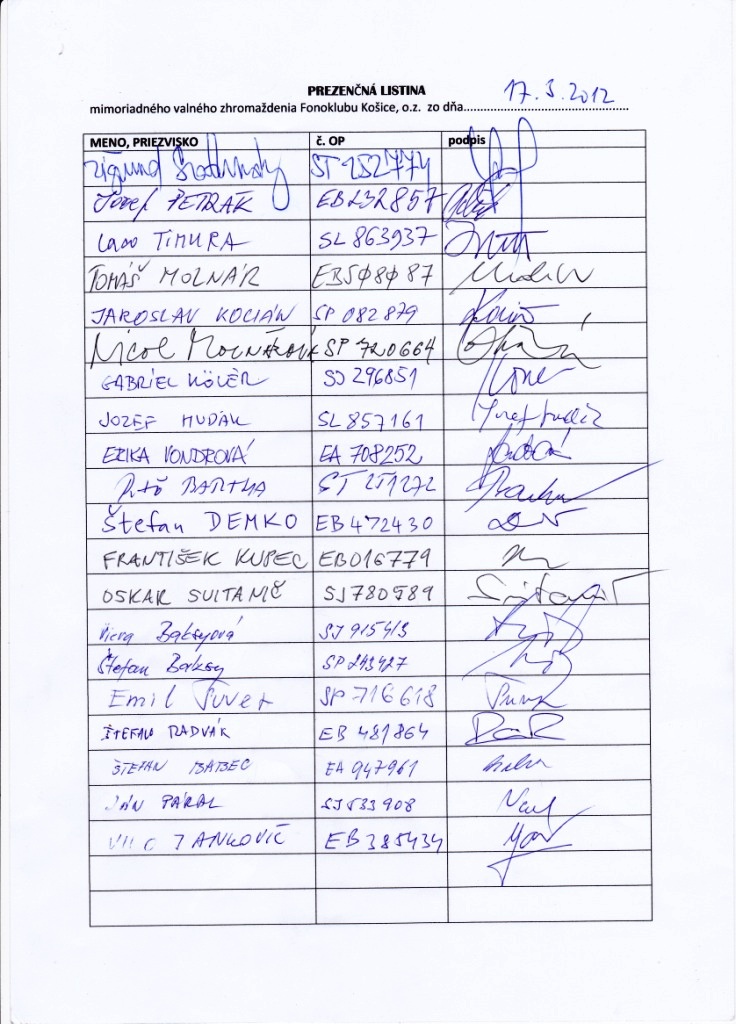 PREZENČNÁ LISTINA
mimoriadného valného zhromaždenia Fonoklubu Košice, o.z. zo dňa 17.3.2012
MENO, PRIEZVISKO č. OP podpis
ST 252774
Jozef PETRÁK EB232857
Laco TIMURA SL 863937
TOMÁŠ MOLNÁR EB508087
JAROSLAV KOCIÁN SP 082879
Nicol Molnárová SP 720664
GABRIEL SJ 296851
JOZEF HUDÁK SL 857161
ERIKA VONDROVÁ EA 708252
BARTHA
Štefan DEMKO EB 472430
FRANTIŠEK KUPEC EB016779
OSKAR SVITANIČ SJ780589
Viera Baksyová SJ 915413
Štefan Baksy SP 243427
Emil SP 716618
ŠTEFAN RADVÁK EB 481864
ŠTEFAN BABEC EA 947961
JÁN PÁRAL SJ533908
JANKOVIČ EB385434